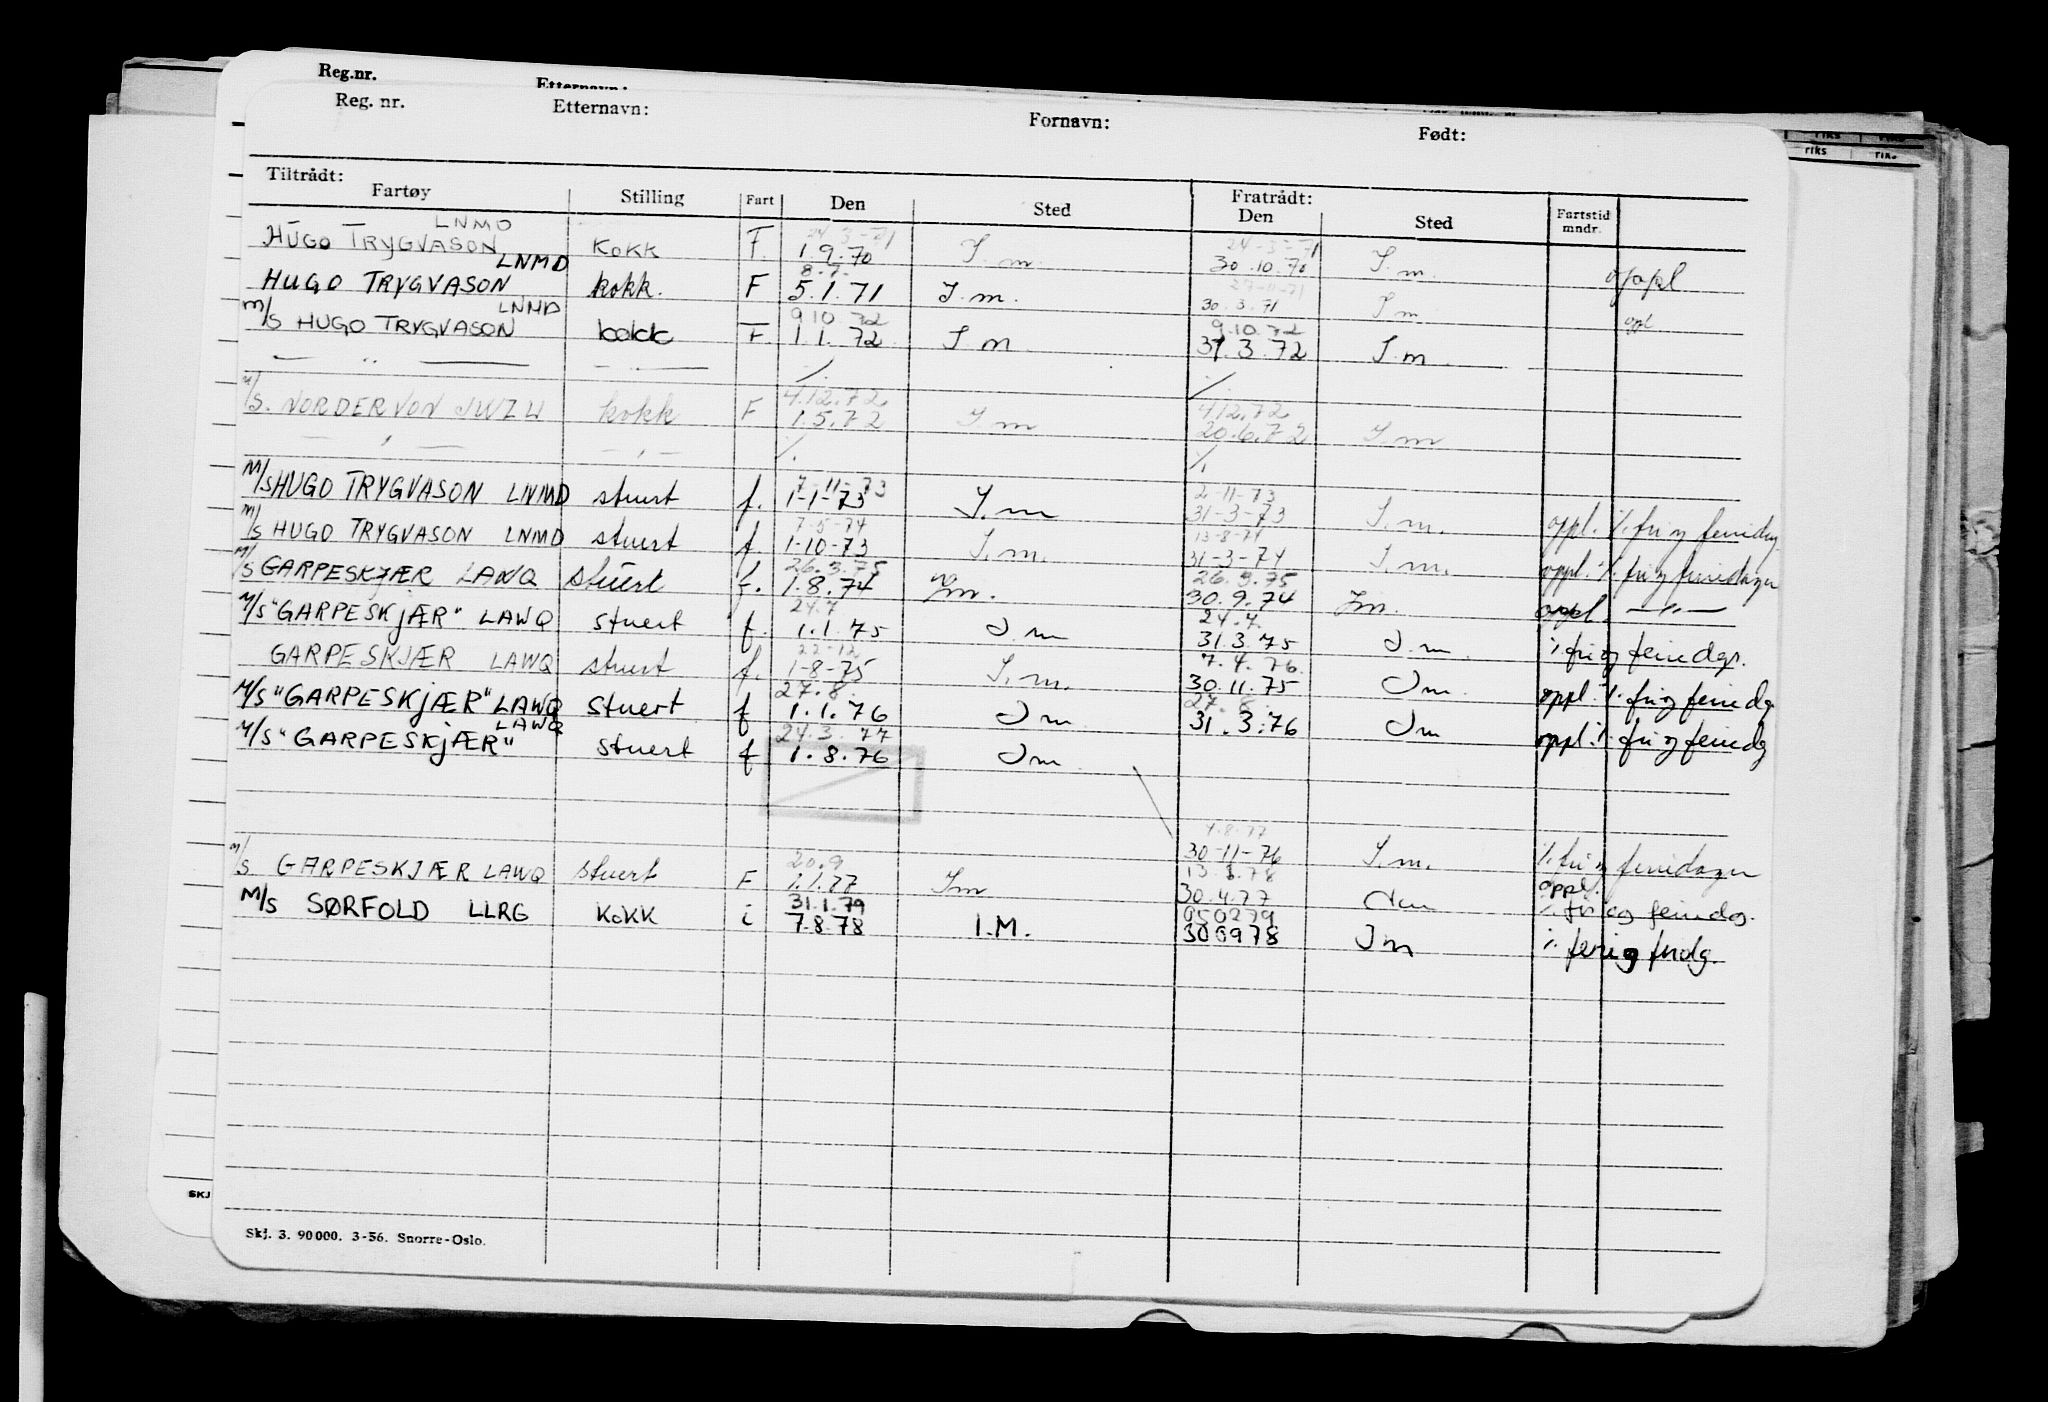 Reg.nr. Etternavn:
Reg. nr. Etternavn: Fornavn: Født:
riks riks
Tiltrådt: Fratrådt:
Fartøy Stilling Fart Den Sted Den Sted Fartstid mndr.
LNMD 24-3-71 24-3-71
HUGO TRYGVASON KOKK F. 1.9.70 I.m. 30.10.70 I.m. oppl
LNMD 8.7. 27-11-71
HUGO TRYGVASON kokk. F 5.1.71 I.m. 30.3.71 I m opl
LNMD 9.10.72 9.10.72
M/S HUGO TRYGVASON kokk F. 1.1.72 I m. 31.3.72 I m.
— " — — " — ·/. ·/.
4.12.72 4.12.72
M/S. NORDERVON JWZW kokk F 1.5.72 I m 20.6.72 I m
— " — — " — ·/. ·/.
7-11-73 2-11-73
M/S HUGO TRYGVASON LNMD stuert f. 1-1-73 I.m 31-3-73 I.m. oppl. ·/. fri og feriedag
7-5-74 13-8-74
M/S HUGO TRYGVASON LNMD stuert f. 1-10-73 I.m. 31-3-74 I.m. oppl. ·/. fri og feriedager
26.3.75 26.3.75
M/S GARPESKJÆR LAWQ stuert f. 1.8.74 Im. 30.9.74 Im. oppl — " —
24.7 24.7.
M/S "GARPESKJÆR" LAWQ stuert f. 1.1.75 I m 31.3.75 I.m. ·/. fri og feriedgr.
22-12 7.4.76.
GARPESKJÆR LAWQ stuert f. 1-8-75 I.m. 30.11.75 Im. oppl. ·/. fri og feriedg
27.8. 27.8.
M/S "GARPESKJÆR" LAWQ stuert f 1.1.76 I m 31.3.76 Im oppl. ·/. fri og feriedg
LAWQ 24.3.77
M/S "GARPESKJÆR" stuert f 1.8.76 I m
4.8.77
30-11-76 I.m. ·/. fri og feriedager
20.9 13.1.78 oppl.
M/S. GARPESKJÆR LAWQ stuert F 1.1.77 Im 30.4.77 Im ·/. fri og feriedg.
31.1.79 050279
M/S SØRFOLD LLRG KOKK i 7.8.78 I.M. 300978 I m ·/. feri og fridg.
SKJ
Skj. 3. 90 000. 3-56. Snorre-Oslo.